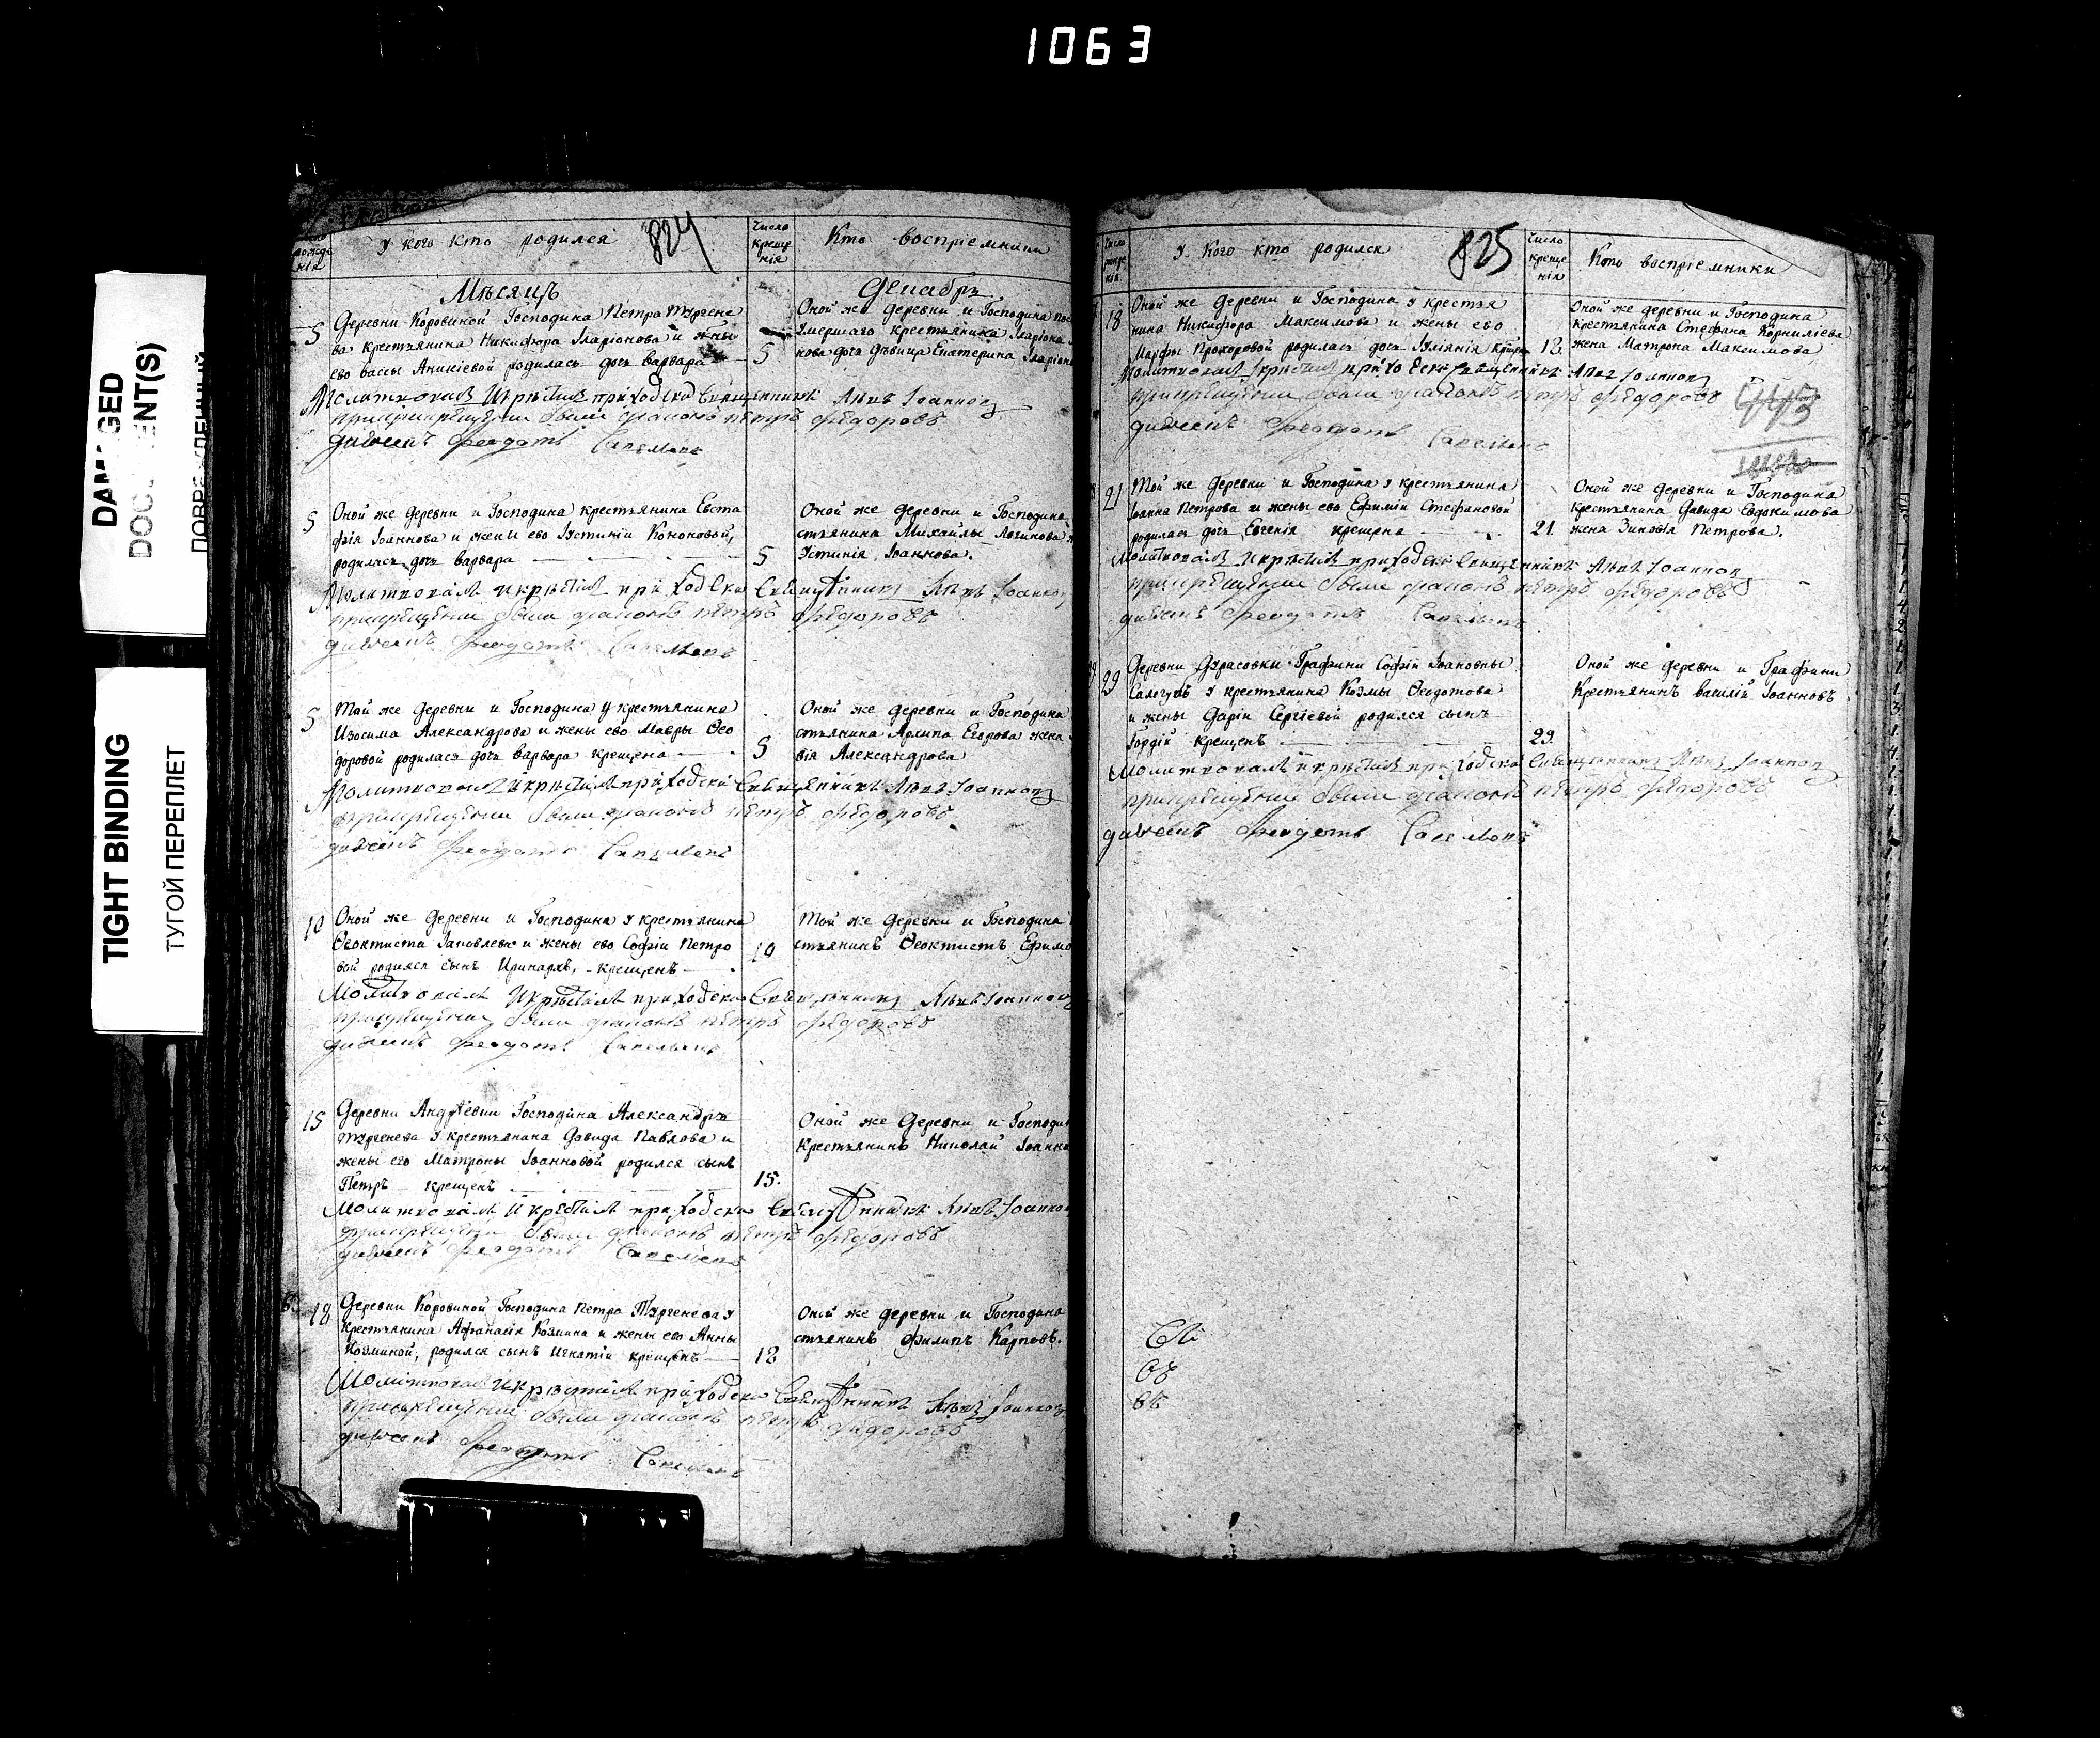 1063
DAMAGED
DOCUMENT(S)
TIGHT BINDING
ТУГОЙ ПЕРЕПЛЕТ
рожде
нія
У кого кто родился
824
Число
креще
нія
Кто воспріемники
Мѣсяцъ
Декабрь
5
Деревни Коровиной Господина Петра Тургене
ва крестьянина Никифора Иларіонова и жены
ево Вассы Аникіевой родилась дочь Варвара
5
Оной же деревни и Господина
Умершаго крестьянина Иларіона
нова дочь дѣвица Екатерина Иларіоно
Молитвовалъ и крестилъ приходской Священникъ Левъ Іоанновъ
при крещеніи были дьяконъ Петръ Федоровъ
дьячекъ Феодотъ
5
Оной же деревни и Господина крестьянина Евста
фія Іоаннова и жены ево Іустиніи Кононовой,
родилась дочь Варвара
5
Оной же деревни и Господина
стьянина Михайлы Логинова
Устинія Іоаннова.
Молитвовалъ и крестилъ приходской Священникъ Левъ Іоанновъ
при крещеніи были дьяконъ Петръ Федоровъ
дьячекъ Феодотъ
5
Той же деревни и Господина у крестьянина
Изосима Александрова и жены ево Мавры Ѳео
доровой родилась дочь Варвара крещена
5
Оной же деревни и Господина
стьянина Архипа Егорова жена
вія Александрова
Молитвовалъ и крестилъ приходской Священникъ Левъ Іоанновъ
при крещеніи были дьяконъ Петръ Федоровъ
дьячекъ Феодотъ
10
Оной же деревни и Господина у крестьянина
Ѳеоктиста Іаковлева и жены ево Софіи Петро
вой родился сынъ Иринархъ, крещенъ
10
Той же деревни и Господина
стьянинъ Ѳеоктистъ Ефимо
Молитвовалъ и крестилъ приходской Священникъ Левъ Іоанновъ
при крещеніи были дьяконъ Петръ Федоровъ
дьячекъ Феодотъ
15
Деревни Андреевки Господина Александра
Тургенева у крестьянина Давида Павлова и
жены его Матроны Іоанновой родился сынъ
Петръ крещенъ
15.
Оной же деревни и Господин
Крестьянинъ Николай Іоанно
Молитвовалъ и крестилъ приходской Священникъ Левъ Іоанновъ
при крещеніи были дьяконъ Петръ Федоровъ
дьячекъ Феодотъ
18
Деревни Коровиной Господина Петра Тургенева у
Крестьянина Афанасія Козмина и жены его Анны
Козминой, родился сынъ Игнатій крещенъ
18
Оной же деревни и Господина
стьянинъ Филипъ Карповъ.
Молитвовалъ и крестилъ приходской Священникъ Левъ Іоанновъ
при крещеніи были дьяконъ Петръ Федоровъ
дьячекъ Феодотъ
Число
рожде
нія
У кого кто родился
825
Число
креще
нія
Кто воспріемники
18
Оной же деревни и Господина у крестья
нина Никифора Максимова и жены ево
Марфы Прохоровой родилась дочь Іуліянія
18
Оной же деревни и Господина
Крестьянина Стефана Корниліева
жена Матрона Максимова
Молитвовалъ и крестилъ приходской Священникъ Левъ Іоанновъ
при крещеніи были дьяконъ Петръ Федоровъ
дьячекъ Феодотъ
21
Той же деревни и Господина у крестьянина
Іоанна Петрова и жены ево Ефиміи Стефановой
родилась дочь Евгенія крещена
21.
Оной же деревни и Господина
Крестьянина Давида Евдокимова
жена Зиновія Петрова.
Молитвовалъ и крестилъ приходской Священникъ Левъ Іоанновъ
при крещеніи были дьяконъ Петръ Федоровъ
дьячекъ Феодотъ
29
Деревни Дурасовки Графини Софіи Іоановны
Салогубъ у крестьянина Козмы Ѳеодотова
и жены Даріи Сергіевой родился сынъ
Гордій крещенъ
29.
Оной же деревни и Графини
Крестьянинъ Василій Іоанновъ
Молитвовалъ и крестилъ приходской Священникъ Левъ Іоанновъ
при крещеніи были дьяконъ Петръ Федоровъ
дьячекъ Феодотъ